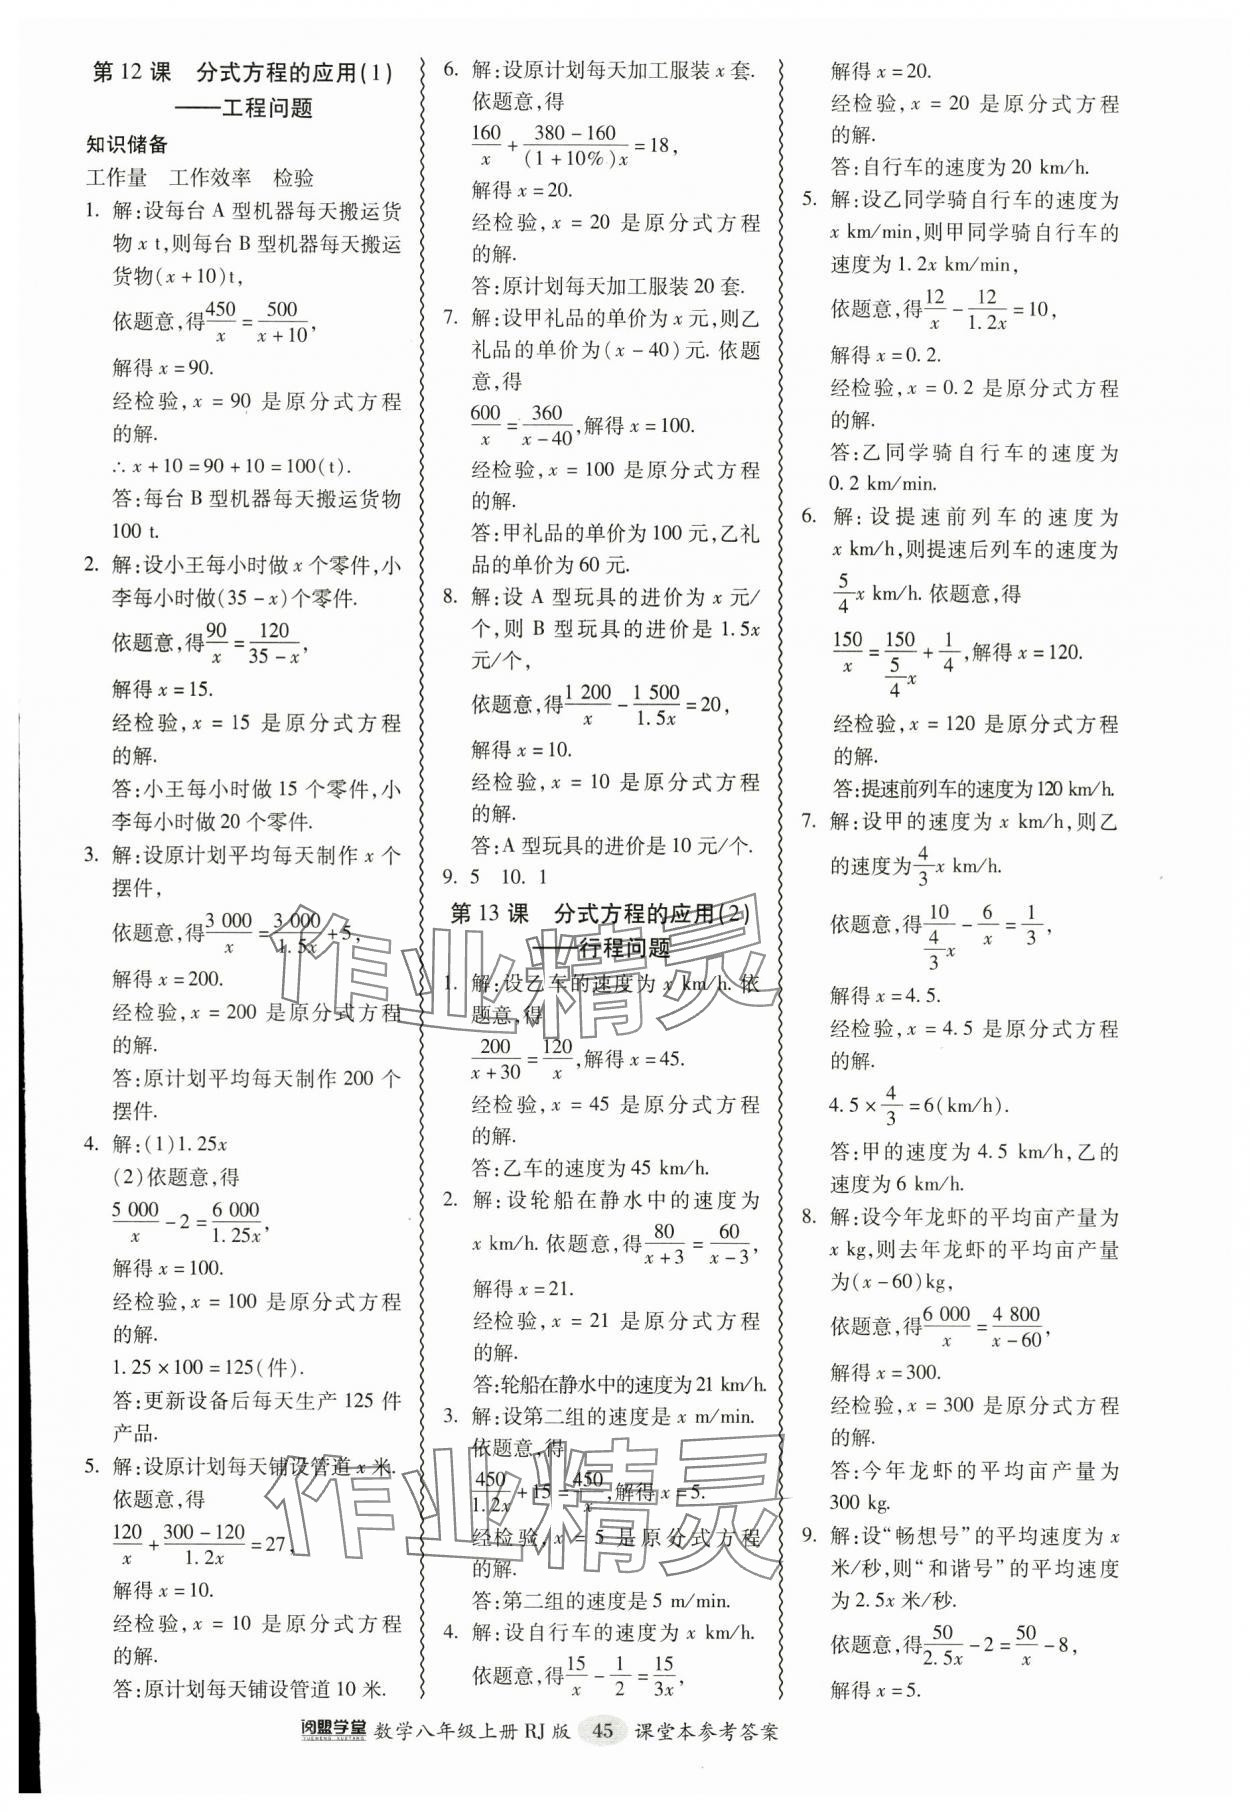 第 12 课　分式方程的应用(1)
——工程问题
知识储备
工作量　工作效率　检验
1. 解:设每台 A 型机器每天搬运货
物 x t,则每台 B 型机器每天搬运
货物(x+10)t,
依题意,得450/x=500/(x+10),
解得 x=90.
经检验,x=90 是原分式方程
的解.
∴x+10=90+10=100(t).
答:每台 B 型机器每天搬运货物
100 t.
2. 解:设小王每小时做 x 个零件,小
李每小时做(35-x)个零件.
依题意,得90/x=120/(35-x),
解得 x=15.
经检验,x=15 是原分式方程
的解.
答:小王每小时做 15 个零件,小
李每小时做 20 个零件.
3. 解:设原计划平均每天制作 x 个
摆件,
依题意,得3 000/x=3 000/1.5x+5,
解得 x=200.
经检验,x=200 是原分式方程
的解.
答:原计划平均每天制作 200 个
摆件.
4. 解:(1)1.25x
(2)依题意,得
5 000/x-2=6 000/1.25x,
解得 x=100.
经检验,x=100 是原分式方程
的解.
1.25×100=125(件).
答:更新设备后每天生产 125 件
产品.
5. 解:设原计划每天铺设管道 x 米.
依题意,得
120/x+(300-120)/1.2x=27,
解得 x=10.
经检验,x=10 是原分式方程
的解.
答:原计划每天铺设管道 10 米.
6. 解:设原计划每天加工服装 x 套.
依题意,得
160/x+(380-160)/(1+10%)x=18,
解得 x=20.
经检验,x=20 是原分式方程
的解.
答:原计划每天加工服装 20 套.
7. 解:设甲礼品的单价为 x 元,则乙
礼品的单价为(x-40)元. 依题
意,得
600/x=360/(x-40),解得 x=100.
经检验,x=100 是原分式方程
的解.
答:甲礼品的单价为 100 元,乙礼
品的单价为 60 元.
8. 解:设 A 型玩具的进价为 x 元/
个,则 B 型玩具的进价是 1.5x
元/个,
依题意,得1 200/x-1 500/1.5x=20,
解得 x=10.
经检验,x=10 是原分式方程
的解.
答:A 型玩具的进价是 10 元/个.
9. 5　10. 1
第 13 课　分式方程的应用(2)
——行程问题
1. 解:设乙车的速度为 x km/h. 依
题意,得
200/(x+30)=120/x,解得 x=45.
经检验,x=45 是原分式方程
的解.
答:乙车的速度为 45 km/h.
2. 解:设轮船在静水中的速度为
x km/h. 依题意,得80/(x+3)=60/(x-3),
解得 x=21.
经检验,x=21 是原分式方程
的解.
答:轮船在静水中的速度为 21 km/h.
3. 解:设第二组的速度是 x m/min.
依题意,得
450/1.2x+15=450/x,解得 x=5.
经检验,x=5 是原分式方程
的解.
答:第二组的速度是 5 m/min.
4. 解:设自行车的速度为 x km/h.
依题意,得15/x-1/2=15/3x,
解得 x=20.
经检验,x=20 是原分式方程
的解.
答:自行车的速度为 20 km/h.
5. 解:设乙同学骑自行车的速度为
x km/min,则甲同学骑自行车的
速度为 1.2x km/min,
依题意,得12/x-12/1.2x=10,
解得 x=0.2.
经检验,x=0.2 是原分式方程
的解.
答:乙同学骑自行车的速度为
0.2 km/min.
6. 解:设提速前列车的速度为
x km/h,则提速后列车的速度为
5/4x km/h. 依题意,得
150/x=150/(5/4x)+1/4,解得 x=120.
经检验,x=120 是原分式方程
的解.
答:提速前列车的速度为 120 km/h.
7. 解:设甲的速度为 x km/h,则乙
的速度为4/3x km/h.
依题意,得10/(4/3x)-6/x=1/3,
解得 x=4.5.
经检验,x=4.5 是原分式方程
的解.
4.5×4/3=6(km/h).
答:甲的速度为 4.5 km/h,乙的
速度为 6 km/h.
8. 解:设今年龙虾的平均亩产量为
x kg,则去年龙虾的平均亩产量
为(x-60)kg,
依题意,得6 000/x=4 800/(x-60),
解得 x=300.
经检验,x=300 是原分式方程
的解.
答:今年龙虾的平均亩产量为
300 kg.
9. 解:设“畅想号”的平均速度为 x
米/秒,则“和谐号”的平均速度
为 2.5x 米/秒.
依题意,得50/2.5x-2=50/x-8,
解得 x=5.
阅盟学堂 YUEMENG XUETANG 数学八年级上册 RJ 版 45 课堂本参考答案
作业精灵
作业精灵